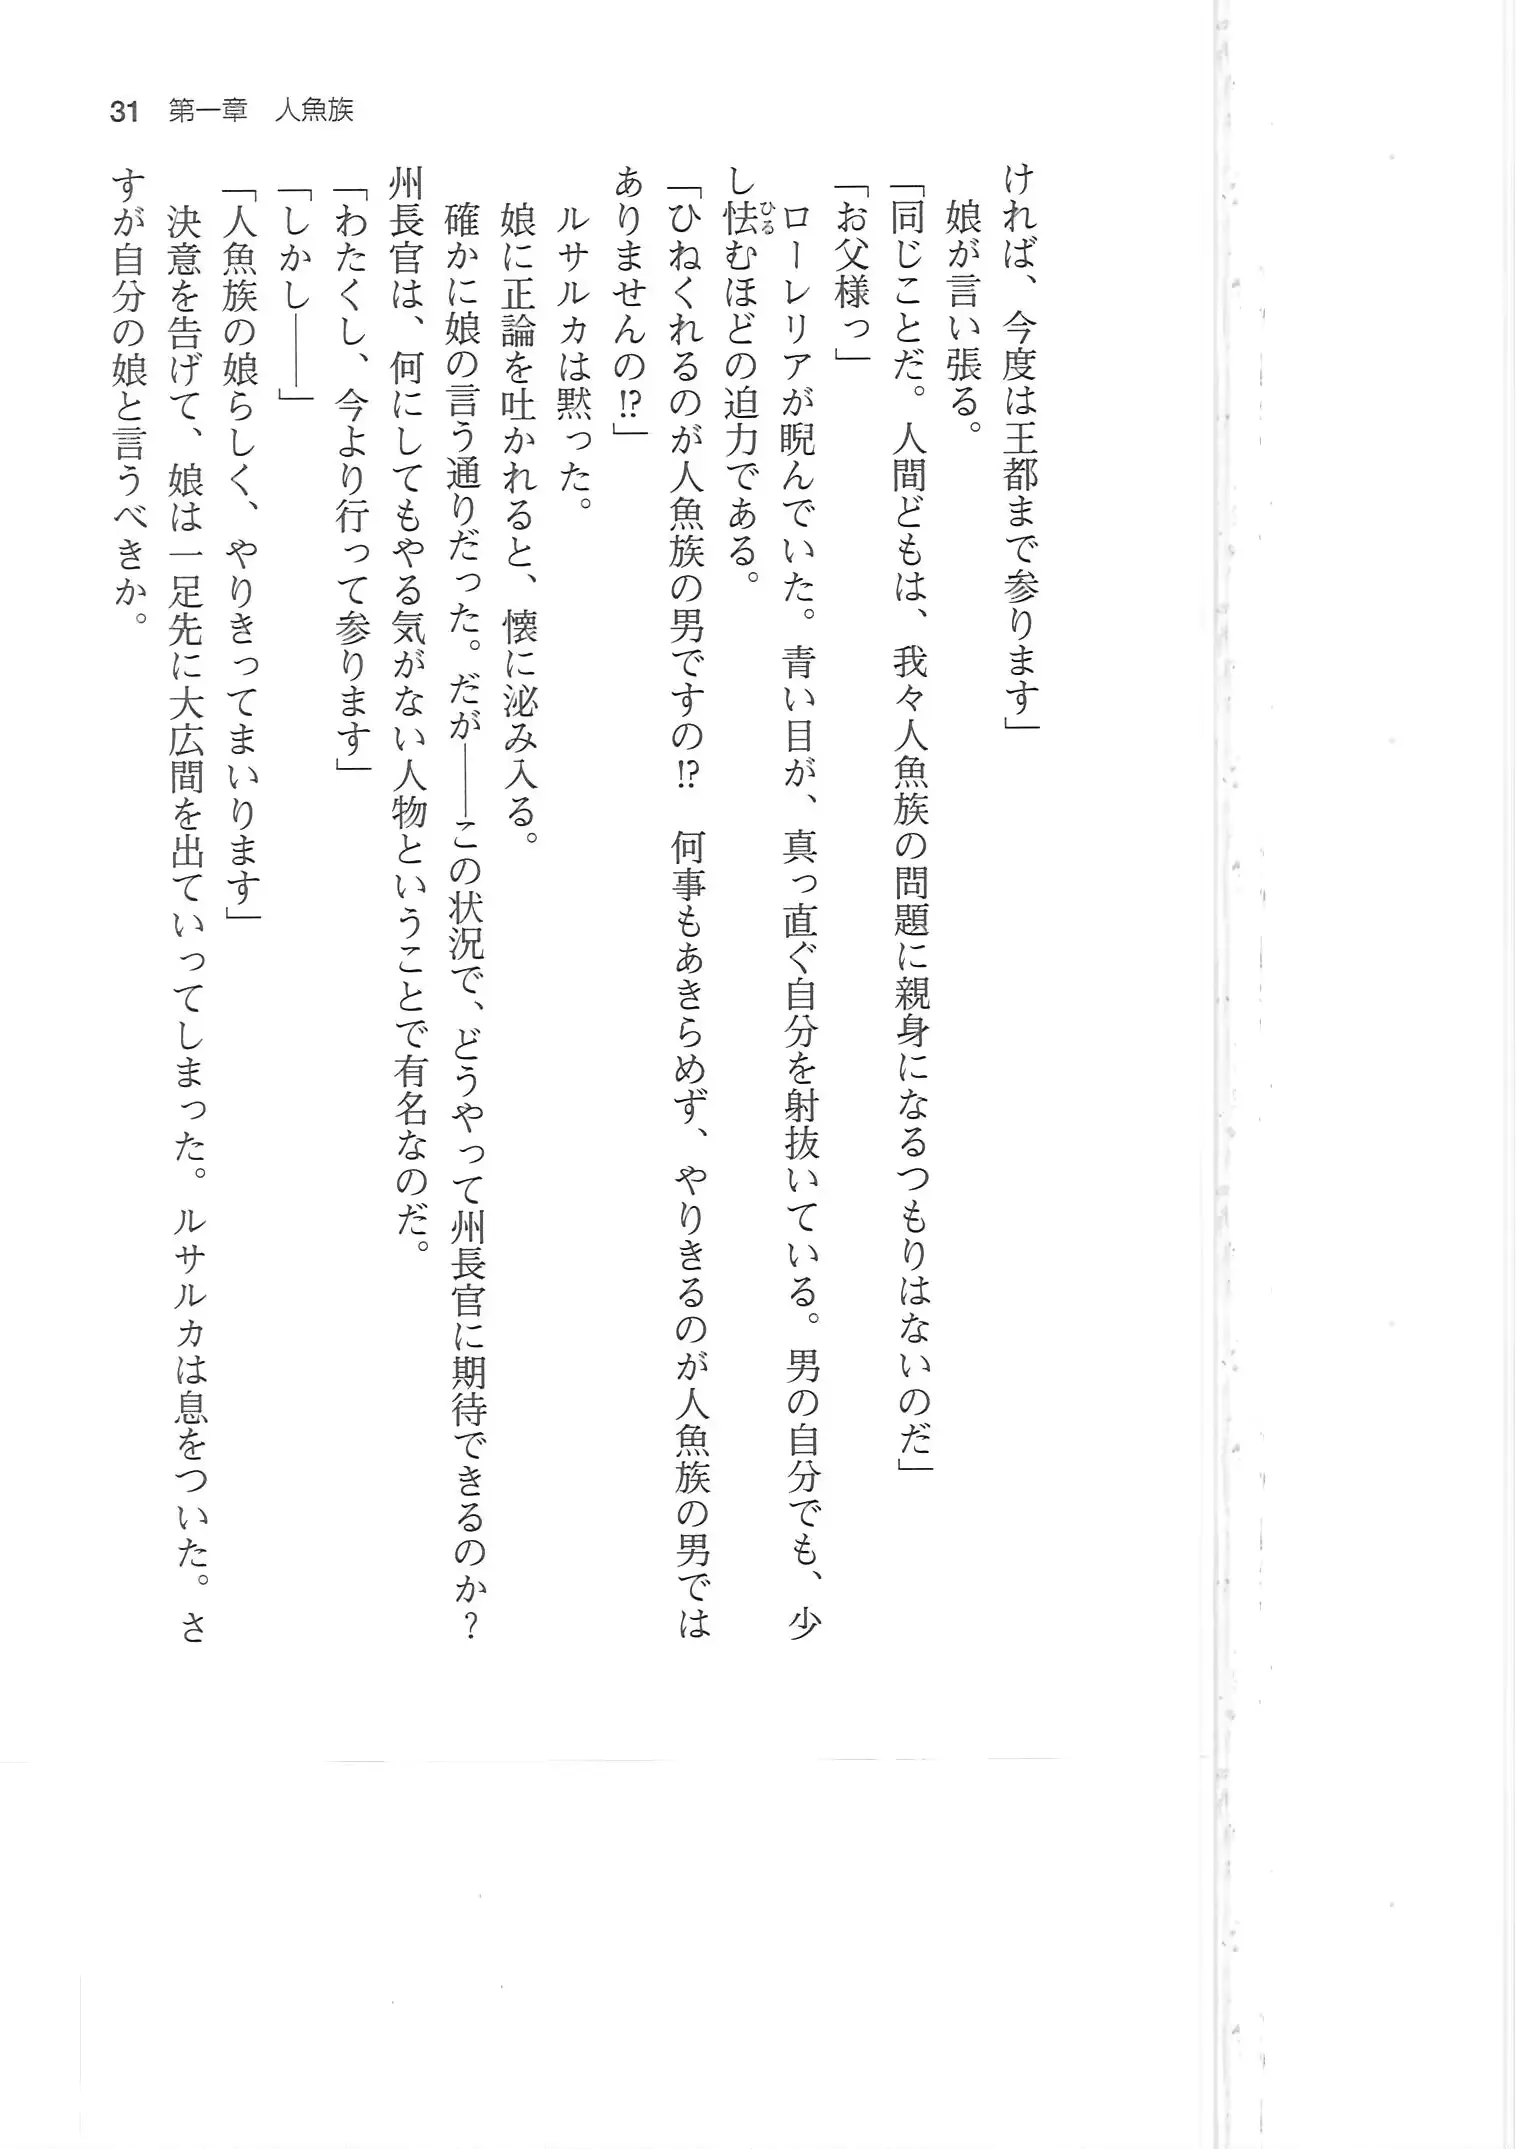 31 第一章 人魚族
ければ、今度は王都まで参ります」
娘が言い張る。
「同じことだ。人間どもは、我々人魚族の問題に親身になるつもりはないのだ」
「お父様っ」
ローレリアが睨んでいた。青い目が、真っ直ぐ自分を射抜いている。男の自分でも、少
し怯むほどの迫力である。
ひる
「ひねくれるのが人魚族の男ですの!? 何事もあきらめず、やりきるのが人魚族の男では
ありませんの!?」
ルサルカは黙った。
娘に正論を吐かれると、懐に泌み入る。
確かに娘の言う通りだった。だが――この状況で、どうやって州長官に期待できるのか?
州長官は、何にしてもやる気がない人物ということで有名なのだ。
「わたくし、今より行って参ります」
「しかし――」
「人魚族の娘らしく、やりきってまいります」
決意を告げて、娘は一足先に大広間を出ていってしまった。ルサルカは息をついた。さ
すが自分の娘と言うべきか。